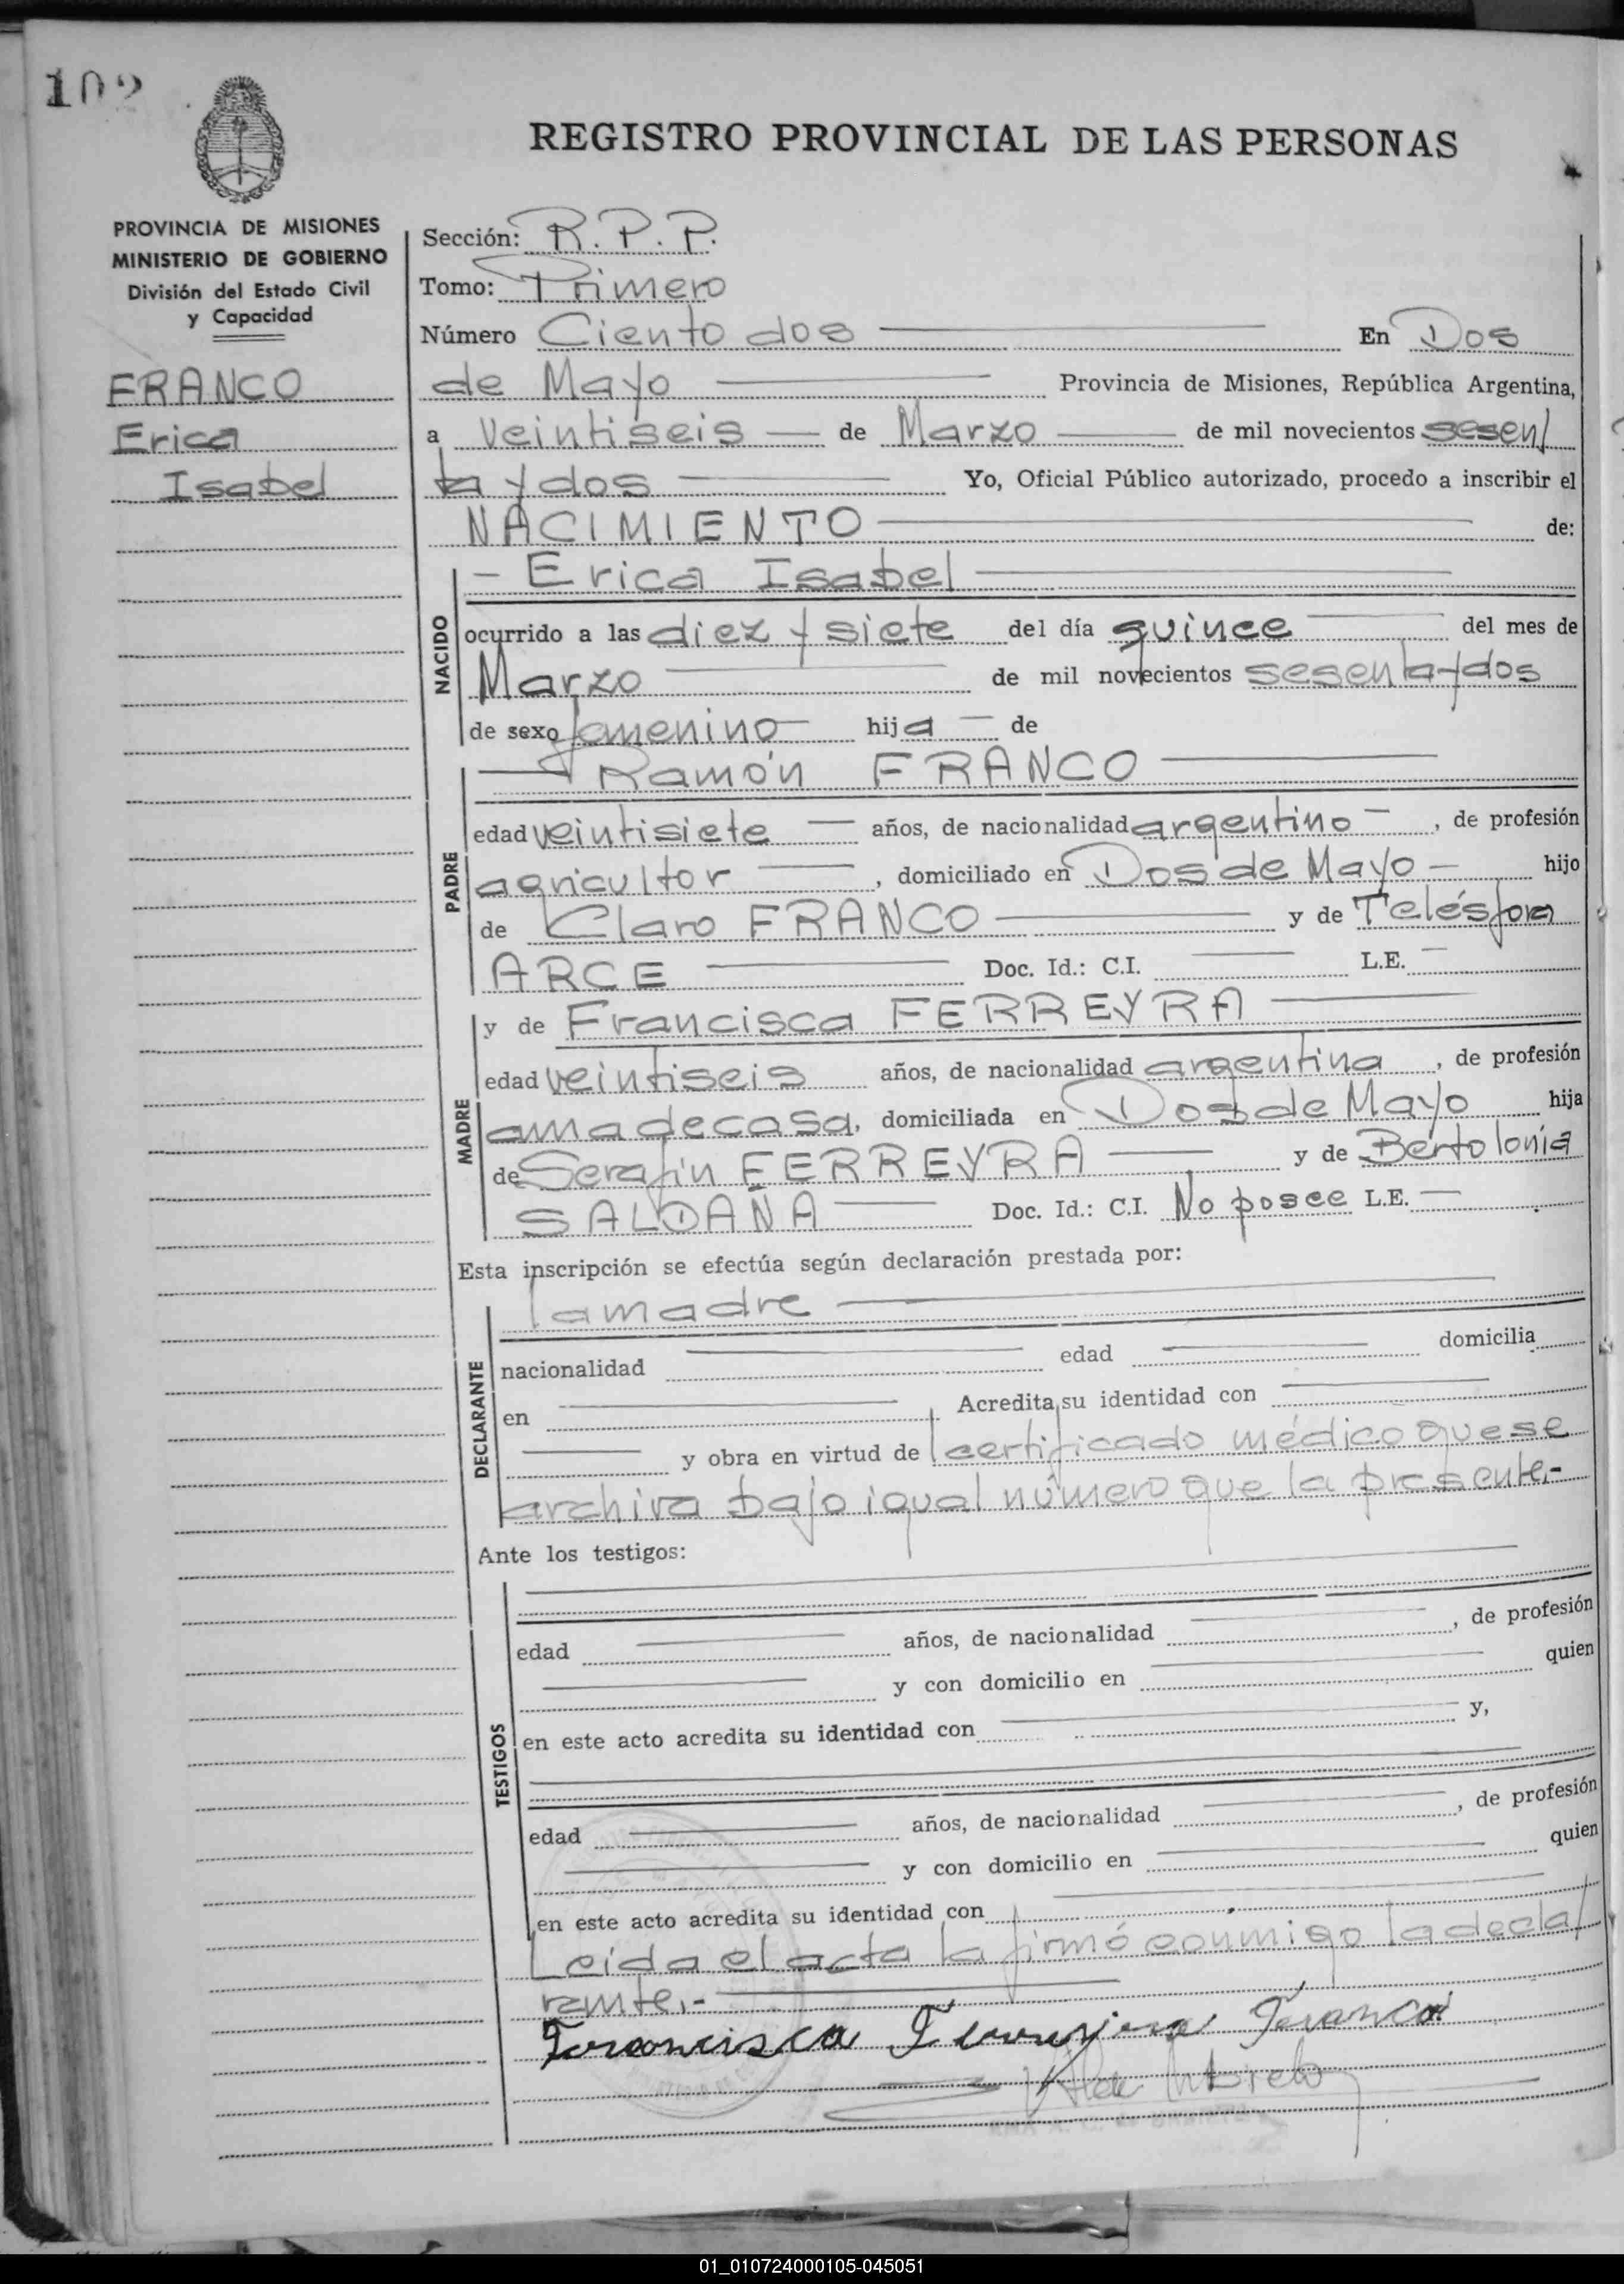 102
REGISTRO PROVINCIAL DE LAS PERSONAS
PROVINCIA DE MISIONES
MINISTERIO DE GOBIERNO
División del Estado Civil
y Capacidad
FRANCO
Erica
Isabel
Sección: R.P.P.
Tomo: Primero
Número Ciento dos En Dos
de Mayo Provincia de Misiones, República Argentina,
a veintiseis de Marzo de mil novecientos sesen/
ta y dos Yo, Oficial Público autorizado, procedo a inscribir el
NACIMIENTO de:
NACIDO
- Erica Isabel
ocurrido a las diez y siete del día quince del mes de
Marzo de mil novecientos sesenta y dos
de sexo femenino hija de
PADRE
Ramón FRANCO
edad veintisiete años, de nacionalidad argentino, de profesión
agricultor, domiciliado en Dos de Mayo hijo
de Claro FRANCO y de Telésfora
ARCE Doc. Id.: C.I. L.E.
MADRE
y de Francisca FERREYRA
edad veintiseis años, de nacionalidad argentina, de profesión
ama de casa, domiciliada en Dos de Mayo hija
de Serafín FERREYRA y de Bertolonia
SALDAÑA Doc. Id.: C.I. No posee L.E.
Esta inscripción se efectúa según declaración prestada por:
DECLARANTE
la madre
nacionalidad edad domicilia
en Acredita su identidad con
y obra en virtud de l certificado médico que se
archiva bajo igual número que la presente.-
Ante los testigos:
TESTIGOS
edad años, de nacionalidad , de profesión
y con domicilio en quien
en este acto acredita su identidad con y,
edad años, de nacionalidad , de profesión
y con domicilio en quien
en este acto acredita su identidad con
Leída el acta la firmó conmigo la decla/
rante.-
Francisca Ferreyra Franco
01_010724000105-045051